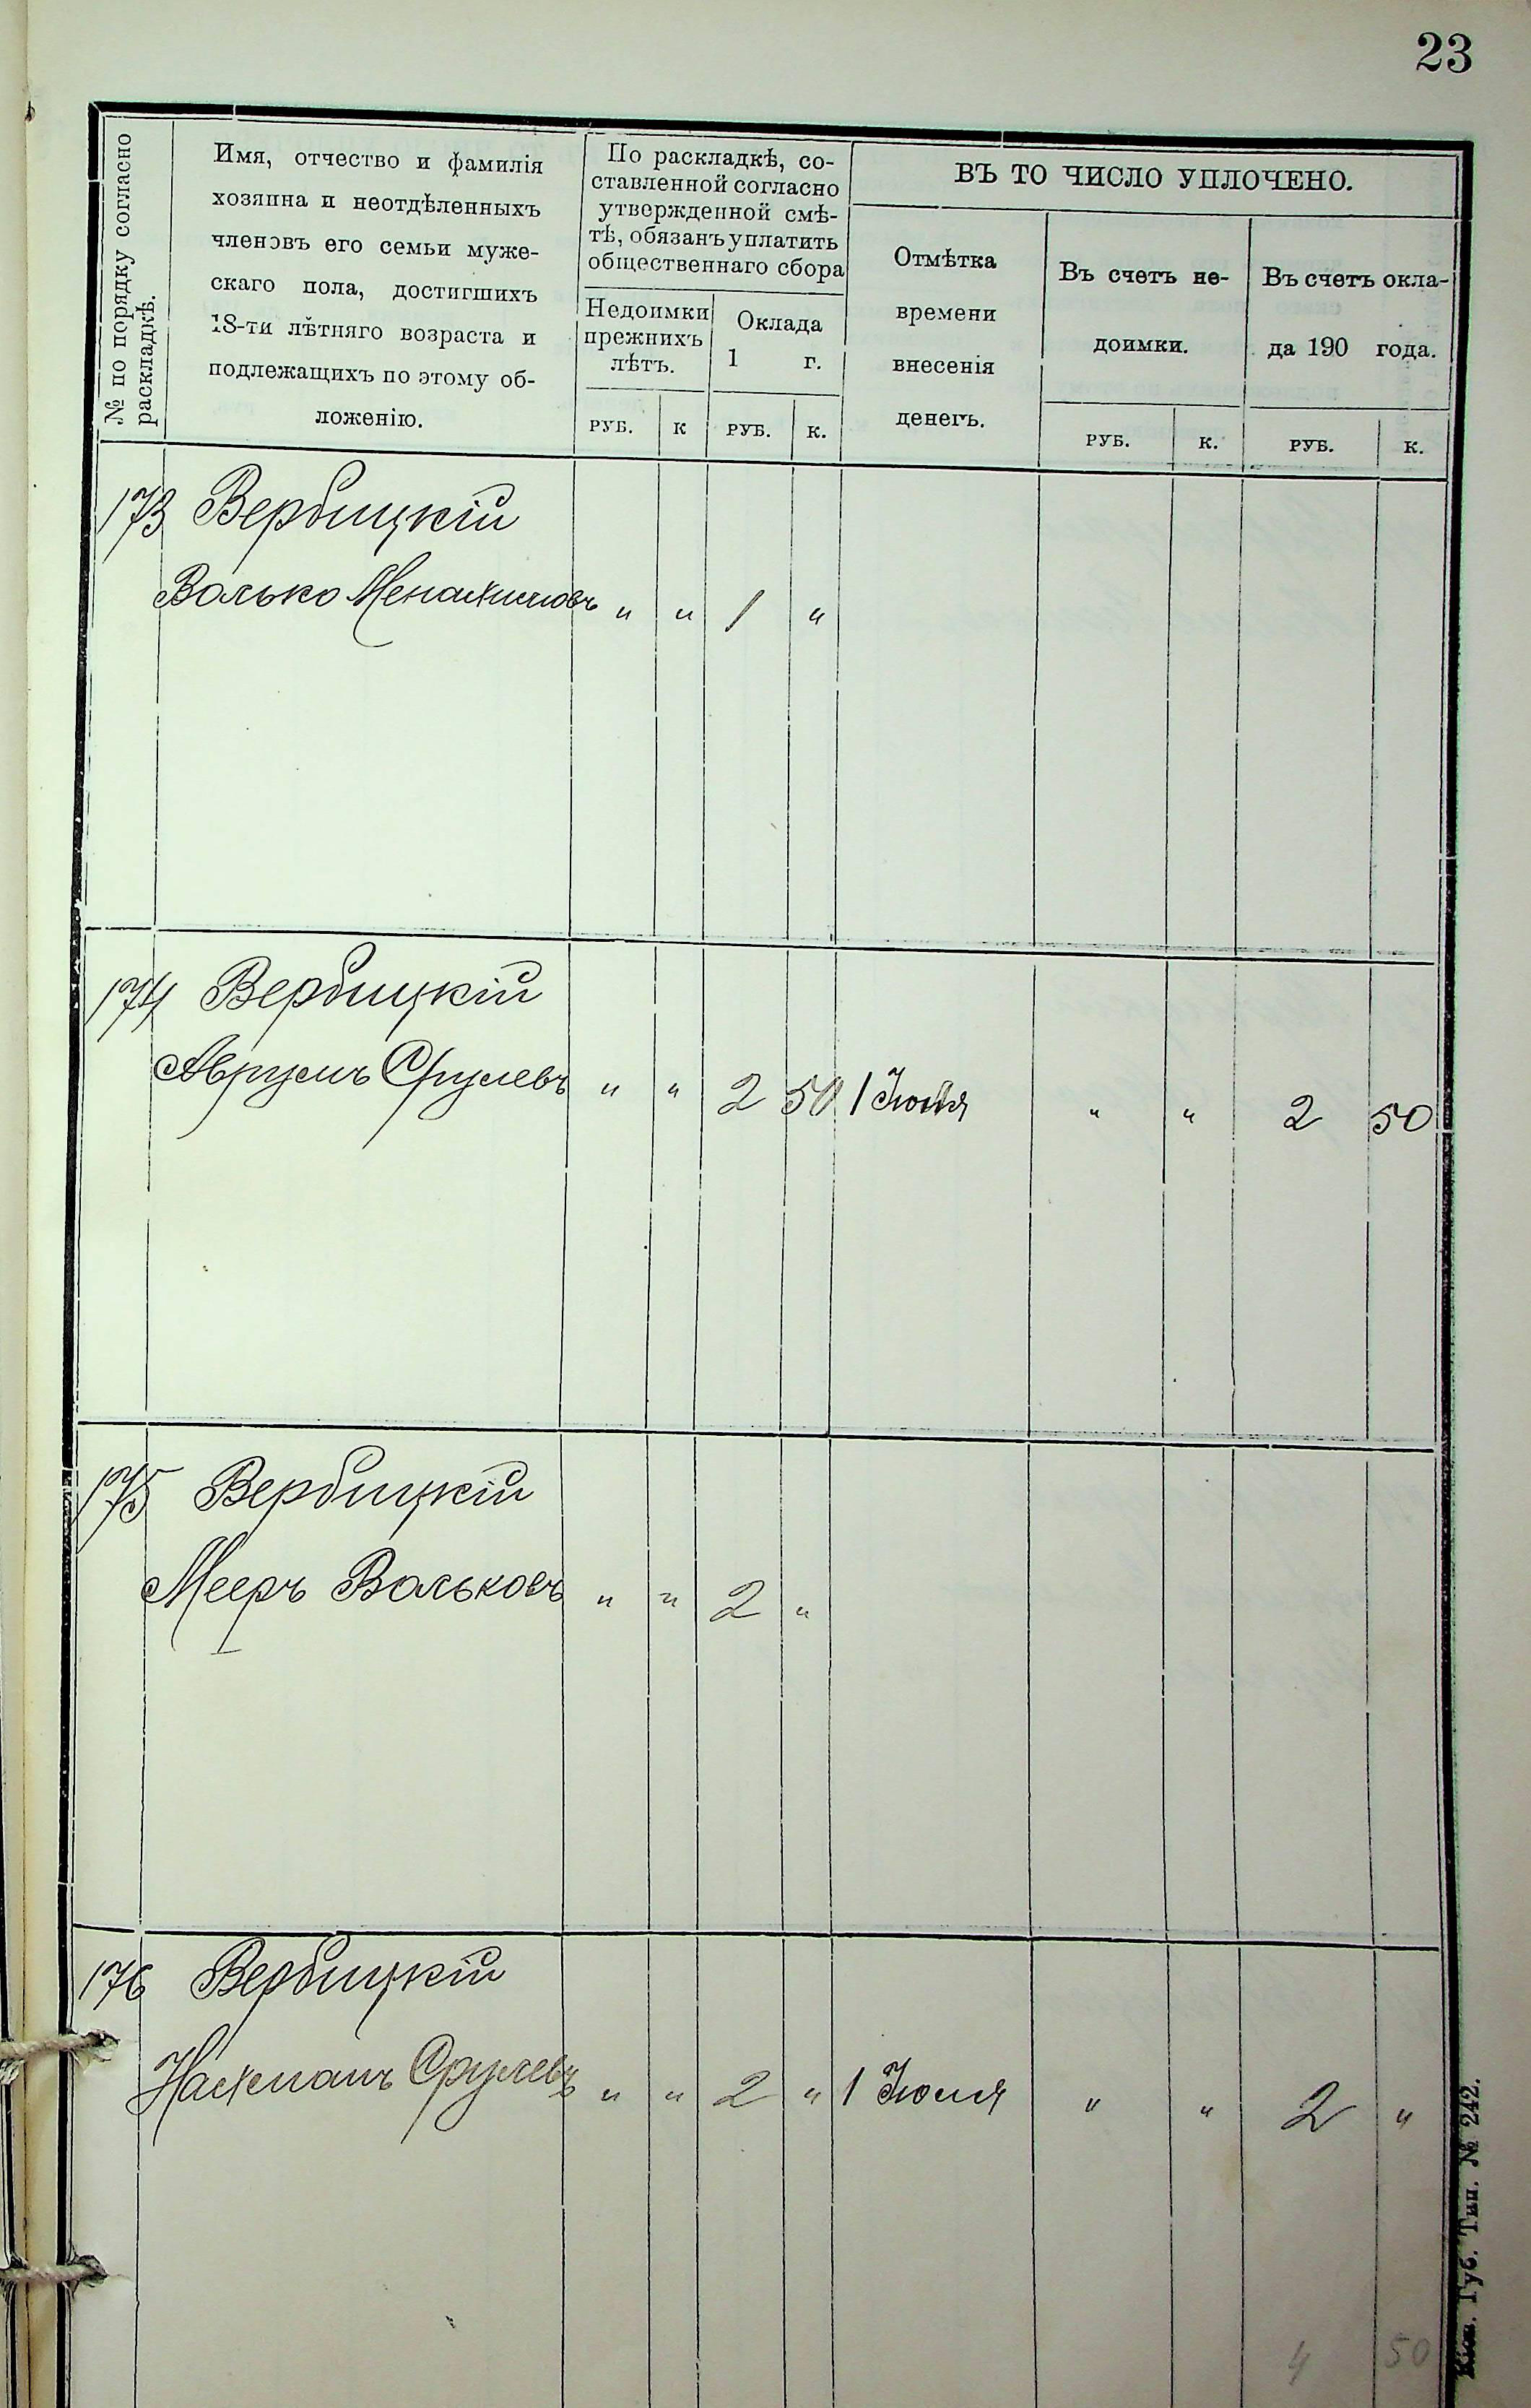 23
№ по порядку согласно
раскладкѣ.
Имя, отчество и фамилія
хозяина и неотдѣленныхъ
членовъ его семьи муже-
скаго пола, достигшихъ
18-ти лѣтняго возраста и
подлежащихъ по этому об-
ложенію.
По раскладкѣ, со-
ставленной согласно
утвержденной смѣ-
тѣ, обязанъ уплатить
общественнаго сбора
Недоимки
прежнихъ
лѣтъ.
Оклада
1 г.
РУБ. К РУБ. К.
ВЪ ТО ЧИСЛО УПЛОЧЕНО.
Отмѣтка
времени
внесенія
денегъ.
Въ счетъ не-
доимки.
РУБ. К.
Въ счетъ окла-
да 190 года.
РУБ. К.
173 Вербицкій
Волько Менахимовъ " " 1 "
174 Вербицкій
Аврумъ Срулевъ " " 2 50 1 " " 2 50
175 Вербицкій
Мееръ Вольковъ " " 2 "
176 Вербицкій
Нахманъ Срулевъ " " 2 " 1 Іюля " " 2 "
4 50
Кіев. Губ. Тип. № 242.